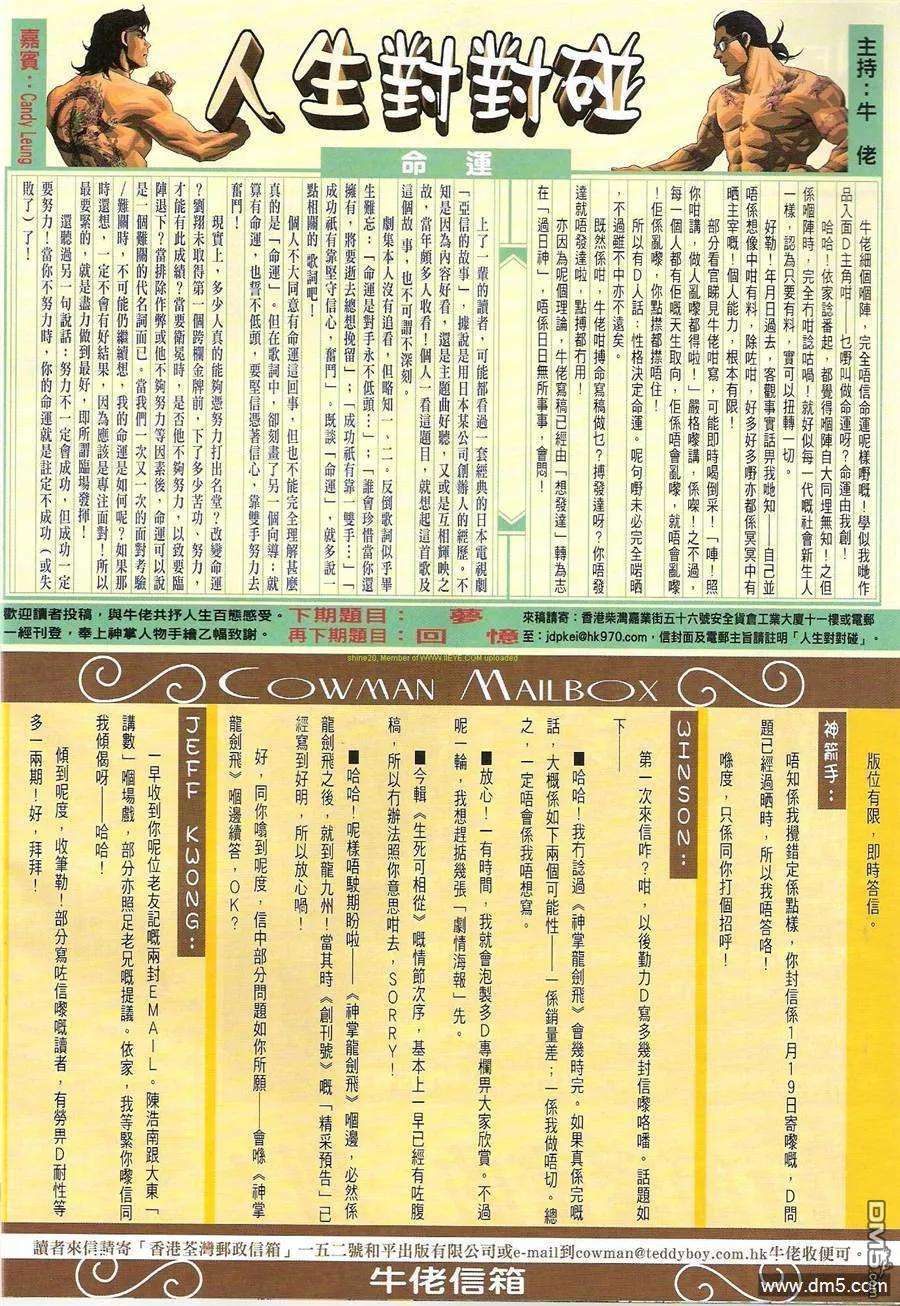 人生對對碰
主持：牛佬
嘉賓：Candy Leung
命運
牛佬細個嗰陣，完全唔信命運呢樣嘢嘅！學似我哋作
品入面D主角咁　乜嘢叫做命運呀？命運由我創！
哈哈！依家諗番起，都覺得嗰陣自大同埋無知！之但
係嗰陣時，完全冇咁諗咕喎！就好似每一代嘅社會新生人
一樣，認為只要有料，實可以扭轉一切。
好勒！年月日過去，客觀事實話畀我哋知——自己並
唔係想像中咁有料，除咗咁，好多好多嘢亦都係冥冥中有
晒主宰嘅！個人能力，根本有限！
部分看官睇見牛佬咁寫，可能即時喝倒采！「唓！照
你咁講，做人亂嚟都得啦！」嚴格嚟講，係㗎！之不過，
每一個人都有佢嘅天生取向，佢係唔會亂嚟，就唔會亂嚟
！佢係亂嚟，你點㩒都㩒唔住！
所以有D人話：性格決定命運。呢句嘢未必完全啱晒
，不過雖不中亦不遠矣。
既然係咁，牛佬咁搏命寫稿做乜？搏發達呀？你唔發
達就唔發達啦，點搏都冇用！
亦因為呢個理論，牛佬寫稿已經由「想發達」轉為志
在「過日神」，唔係日日無所事事，會悶！
上了一輩的讀者，可能都看過一套經典的日本電視劇
「亞信的故事」，據說是用日本某公司創辦人的經歷。不
知是因為內容好看，還是主題曲好聽，又或是互相輝映之
故，當年頗多人收看！個人一看這題目，就想起這首歌及
這個故 事，也不可謂不深刻。
劇集本人沒有追看，但略知一、二。反倒歌詞似乎畢
生難忘：「命運是對手永不低頭…」；「誰會珍惜當你還
擁有，將要逝去總想挽留」；「成功祇有靠一雙手…」「
成功祇有靠堅守信心，奮鬥」。既談「命運」，就多說一
點相關的 歌詞吧！
個人不大同意有命運這回事，但也不能完全理解甚麼
真的是「命運」。但在歌詞中，卻刻畫了另一個向導：就
算有命運，也誓不低頭，要堅信憑著信心，靠雙手努力去
奮鬥！
現實上，多少人真的能夠憑努力打出名堂？改變命運
？劉翔未取得第一個跨欄金牌前，下了多少苦功、努力，
才能有此成績？當要衛冕時，是否他不夠努力，以致要臨
陣退下？當排除作弊或他不夠努力等因素後，命運可以說
是一個難關的代名詞而已。當我們一次又一次的面對考驗
/難關時，不可能仍繼續想，我的命運是如何呢？如果那
時還想，一定不會有好結果，因為應該是專注面對！所以
最要緊的，就是盡力做到最好，即所謂臨場發揮！
還聽過另一句說話：努力不一定會成功，但成功一定
要努力！當你不努力時，你的命運就是註定不成功（或失
敗了）了！
歡迎讀者投稿，與牛佬共抒人生百態感受。
一經刊登，奉上神掌人物手繪乙幅致謝。
下期題目：　夢
再下期題目：回　憶
來稿請寄：香港柴灣嘉業街五十六號安全貨倉工業大廈十一樓或電郵
至：jdpkei@hk970.com，信封面及電郵主旨請註明「人生對對碰」。
shine20, Member of WWW.IIEYE.COM uploaded
COWMAN MAILBOX
版位有限，即時答信。
神箭手：
唔知係我攪錯定係點樣，你封信係1月19日寄嚟嘅，D問
題已經過晒時，所以我唔答咯！
喺度，只係同你打個招呼！
WINSON：
第一次來信咋？咁，以後勤力D寫多幾封信嚟咯噃。話題如
下——
■哈哈！我冇諗過《神掌龍劍飛》會幾時完。如果真係完嘅
話，大概係如下兩個可能性——一係銷量差；一係我做唔切。總
之，一定唔會係我唔想寫。
■放心！一有時間，我就會泡製多D專欄畀大家欣賞。不過
呢一輪，我想趕掂幾張「劇情海報」先。
■今輯《生死可相從》嘅情節次序，基本上一早已經有咗腹
稿，所以冇辦法照你意思咁去，SORRY！
■哈哈！呢樣唔駛期盼啦——《神掌龍劍飛》嗰邊，必然係
龍劍飛之後，就到龍九州！當其時《創刊號》嘅「精采預告」已
經寫到好明，所以放心喎！
好，同你噏到呢度，信中部分問題如你所願——會喺《神掌
龍劍飛》嗰邊續答，OK？
JEFF KWONG：
一早收到你呢位老友記嘅兩封EMAIL。陳浩南跟大東「
講數」嗰場戲，部分亦照足老兄嘅提議。依家，我等緊你嚟信同
我傾偈呀——哈哈！
傾到呢度，收筆勒！部分寫咗信嚟嘅讀者，有勞畀D耐性等
多一兩期！好，拜拜！
讀者來信請寄「香港荃灣郵政信箱」一五二號和平出版有限公司或e-mail到cowman@teddyboy.com.hk牛佬收便可。
牛佬信箱
DM5
www.dm5.com